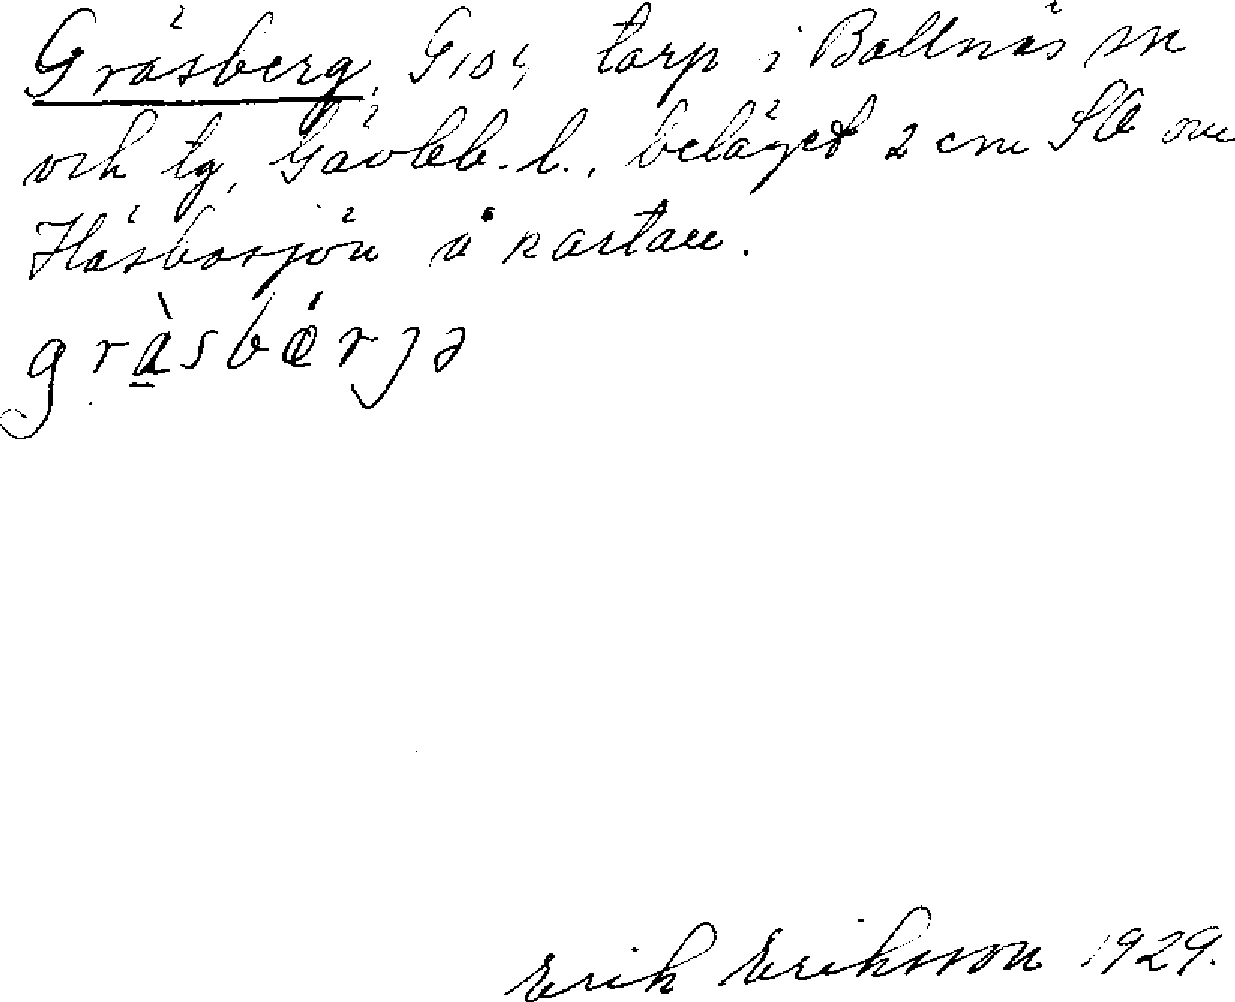 Gräsberg, G 104, torp i Bollnäs sn
och tg, Gävleb. l., beläget 2 cm SV om
Häsbosjön å kartan.
gràsbǽrjə
Erik Eriksson 1929.